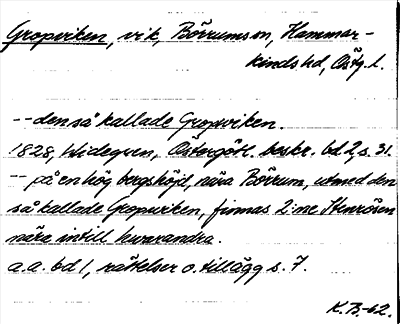 Gropviken, vik, Börrums sn, Hammar-
kinds hd, Östg. l.
-- den så kallade Gropviken.
1828, Widegren, Östergötl. beskr. bd 2, s. 31.
-- på en hög bergshöjd, nära Börrum, utmed den
så kallade Gropwiken, finnas 2:ne Stenrösen
nära intill hwarandra.
a.a. bd 1, rättelser o. tillägg s. 7.
K.B.-62.